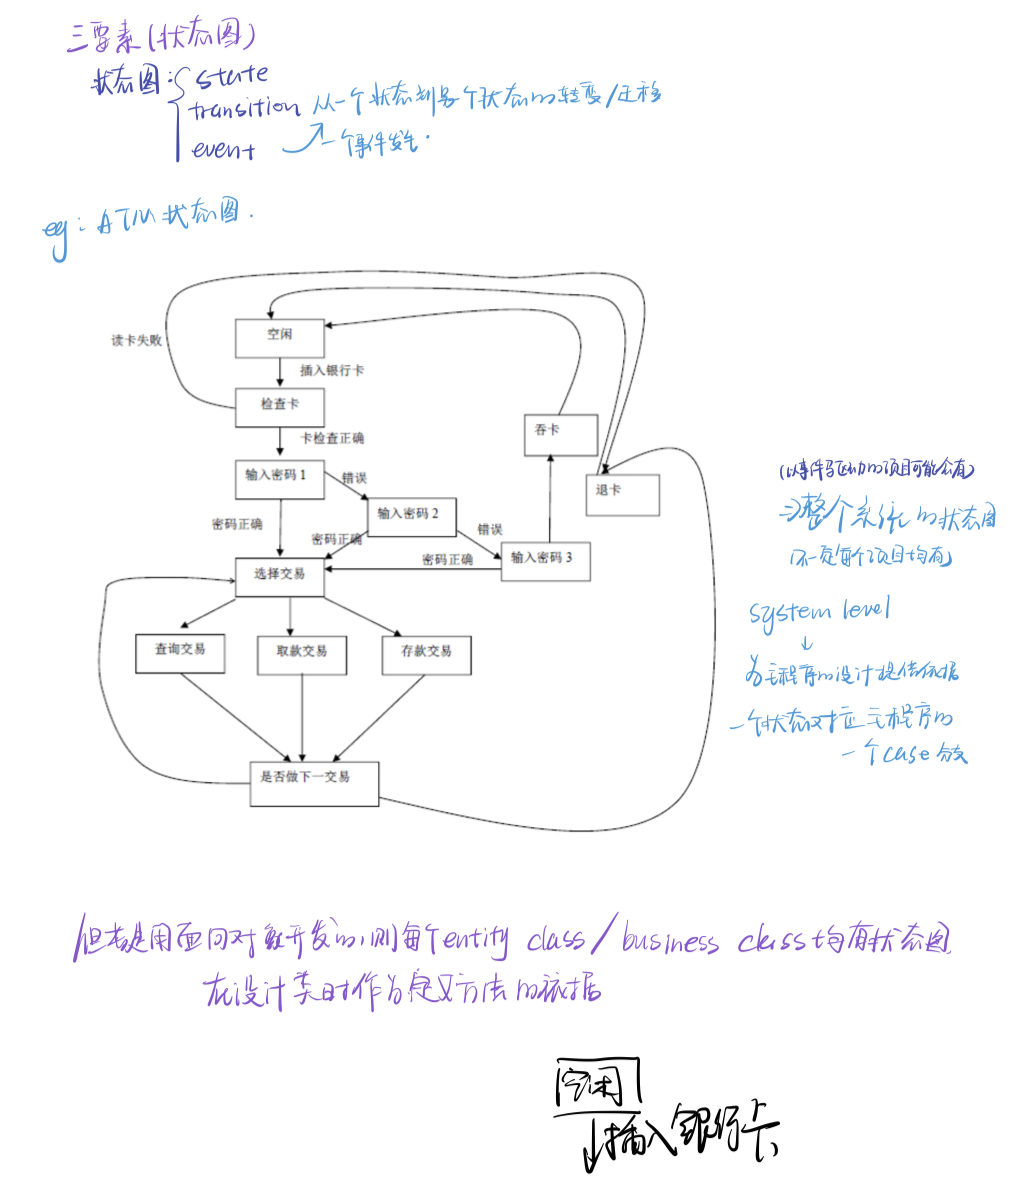 三要素(状态图)
状态图: state
transition 从一个状态到另一个状态的转变/迁移
event 一个事件发生.
eg: ATM状态图.
读卡失败
空闲
插入银行卡
检查卡
卡检查正确
吞卡
输入密码 1
错误
退卡
密码正确
输入密码 2
密码正确
错误
密码正确
输入密码 3
选择交易
查询交易
取款交易
存款交易
是否做下一交易
(以事件驱动的项目可能会有)
⇒整个系统的状态图
(不一定每个项目均有)
system level
↓
为主程序的设计提供依据
一个状态对应主程序的
一个case分支
但若是用面向对象开发的,则每个entity class/business class均有状态图
在设计类时作为定义方法的依据
空闲
↓插入银行卡